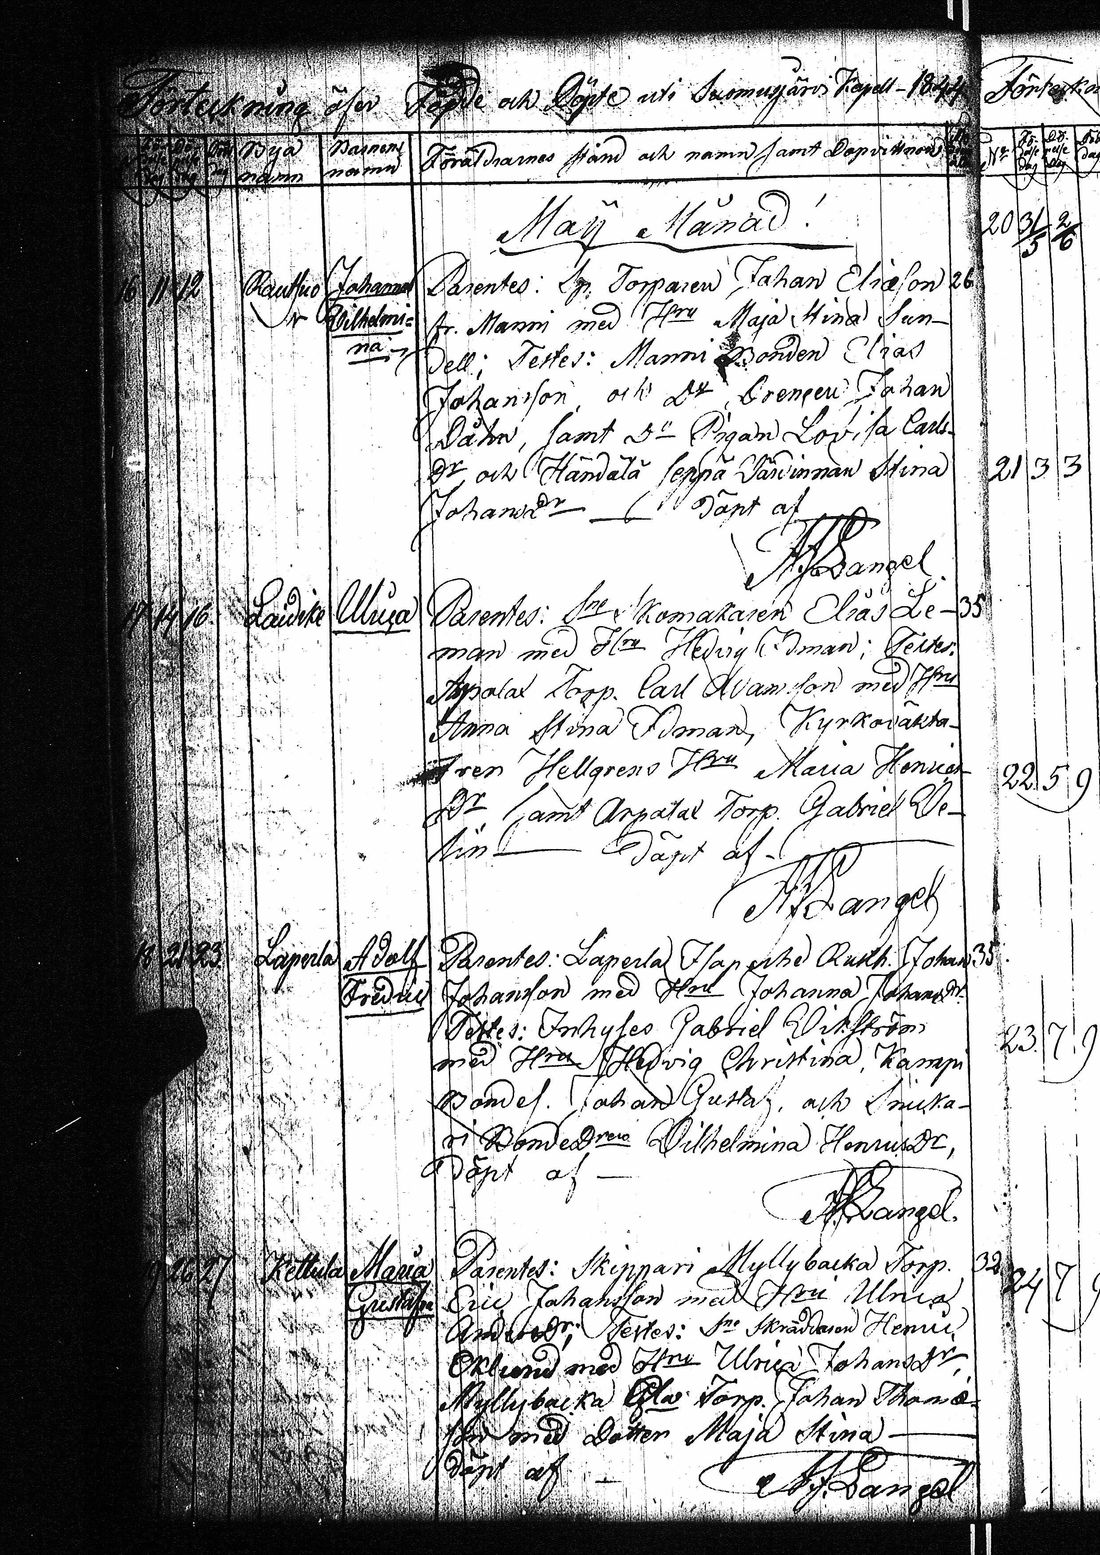 Förteckning öfver Födde och Döpte uti Suomusjärvi Kapell - 1844
Byä namn
Barnens namn
Föräldrarnes stånd och namn samt Dopvittnen
Maij Månad!
16 11 12 Johanna Vilhelmi= na
Parentes: Sp. Torparen Johan Eliæson 26
fr. Manni med Hru Maja Stina Sun-
dell; Testes: Manni Bonden Elias
Johansson, och Dr Drengen Johan
Dahn, samt Dn Pigan Lovisa Carls-
Dr och Händälä Seppä Värdinnan Stina
Johansdr — Döpt af
Langel
17 14 16 Laidike Ulrica
Parentes: Sne Skomakaren Elias Le- 35
man med Hru Hedvig Idman; Testes:
Arpalax Torp. Carl Adamsson med Hru
Anna Stina Idman, Kyrkoväkta-
ren Hellgrens Hru Maria Henrics-
Dr samt Arpalax Torp. Gabriel We-
lin — Döpt af -
Langel
18 21 23 Laperla Adolf Fredric
Parentes: Laperla Rusth. Johan 35
Johansson med Hru Johanna Johansdr
Testes: Inhyses Gabriel Vikström
med Hru Hedvig Christina, Kampi
Bondes. Johan Gustaf, och Snicka-
ri Bonde Vilhelmina Henricsdr,
Döpt af —
Langel.
26 27 Kettula Maria Gustafva
Parentes: Skippari Myllybacka Torp. 32
Eric Johansson med Hru Ulrica
Andersdr; Testes: Sne Skräddaren Henric
Eklund med Hru Ulrica Johansdr,
Myllybacka Torp. Johan Thomæ-
son med Dotter Maja Stina —
Döpt af —
Langel
20 31/5 2/6
21 3 3
22 5 9
23 7 9
24 7 9